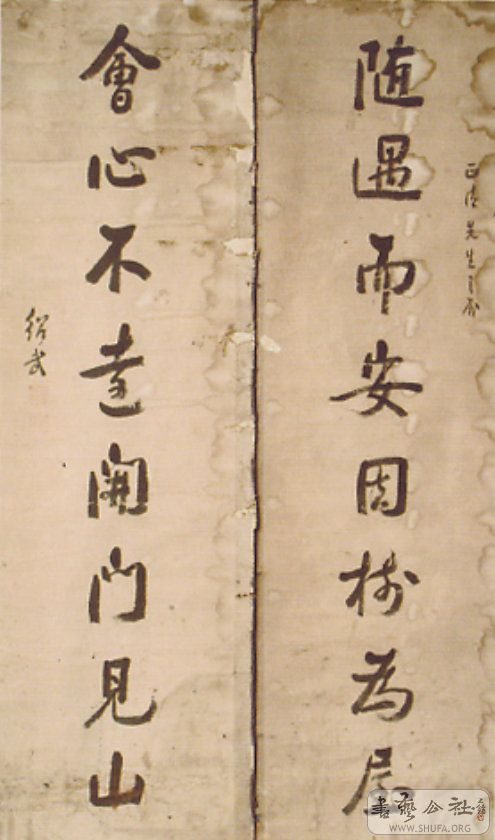 先生
随遇而安因樹為屋
會心不遠開門見山
紹武
書藝公社
WWW.SHUFA.ORG